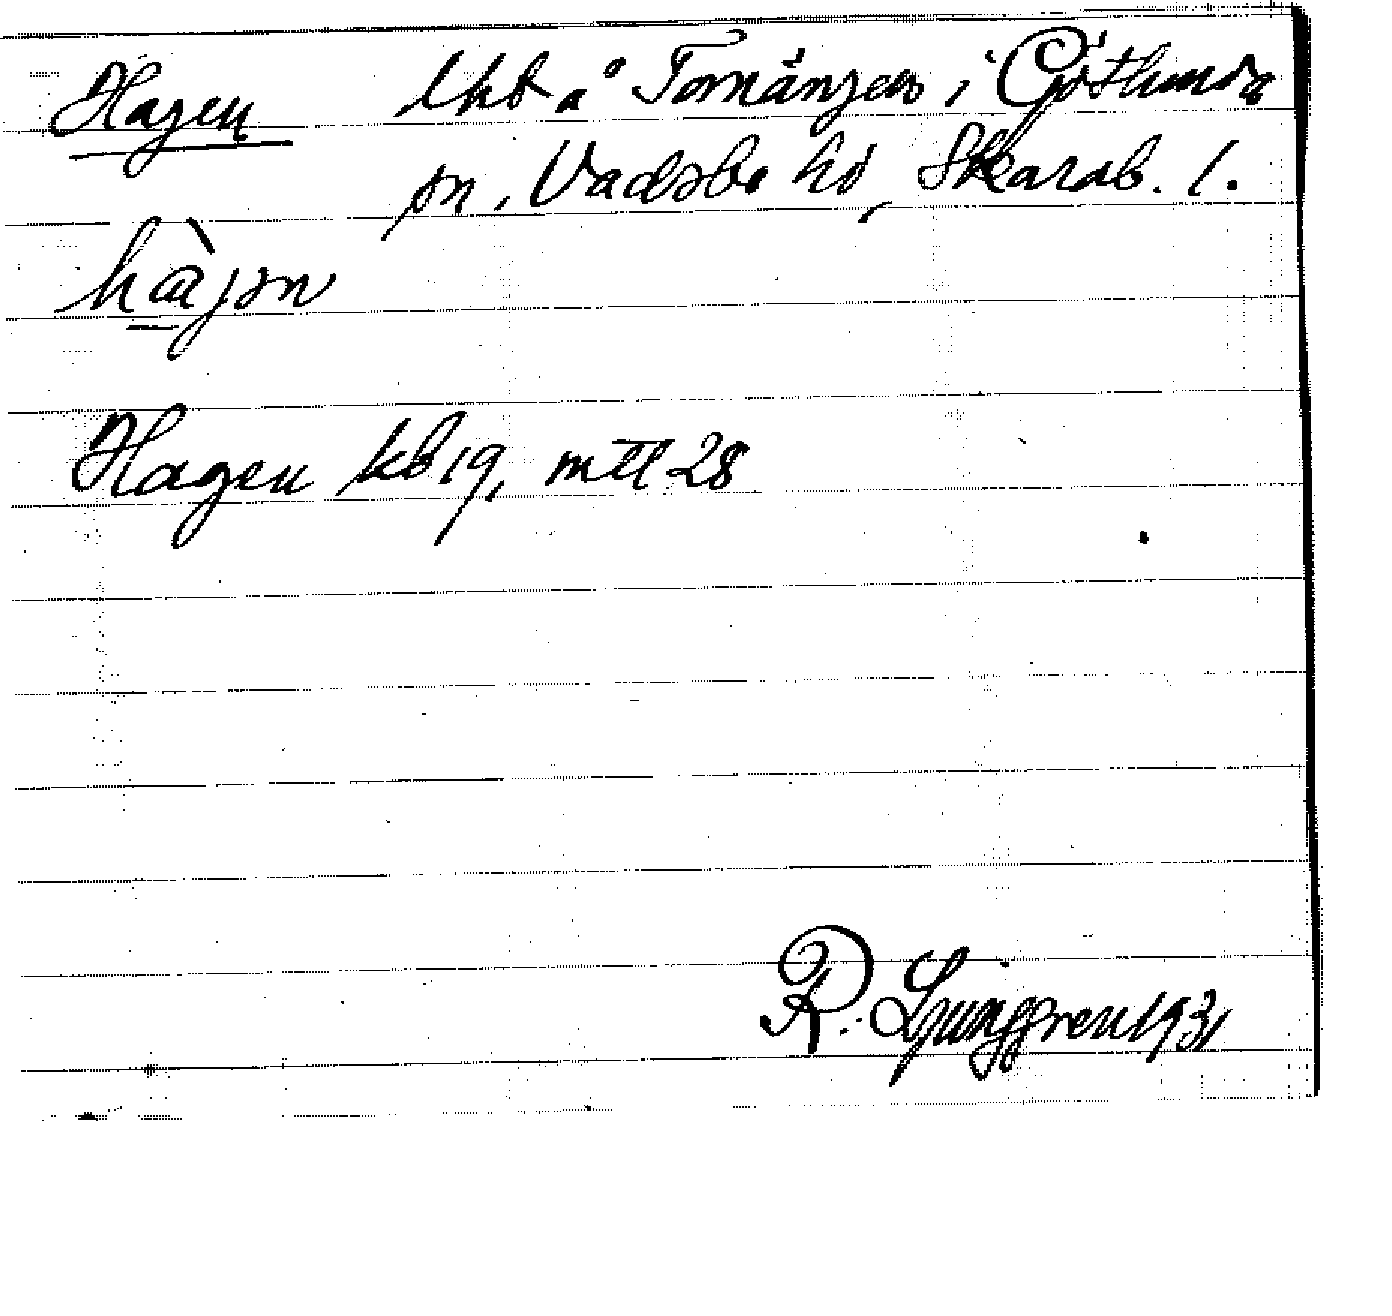 Hagen lht å Tomängen i Götlunda
sn, Vadsbo hd, Skarab. l.
hàjən
Hagen kb 19, mtl 28
R. Ljunggren 1931